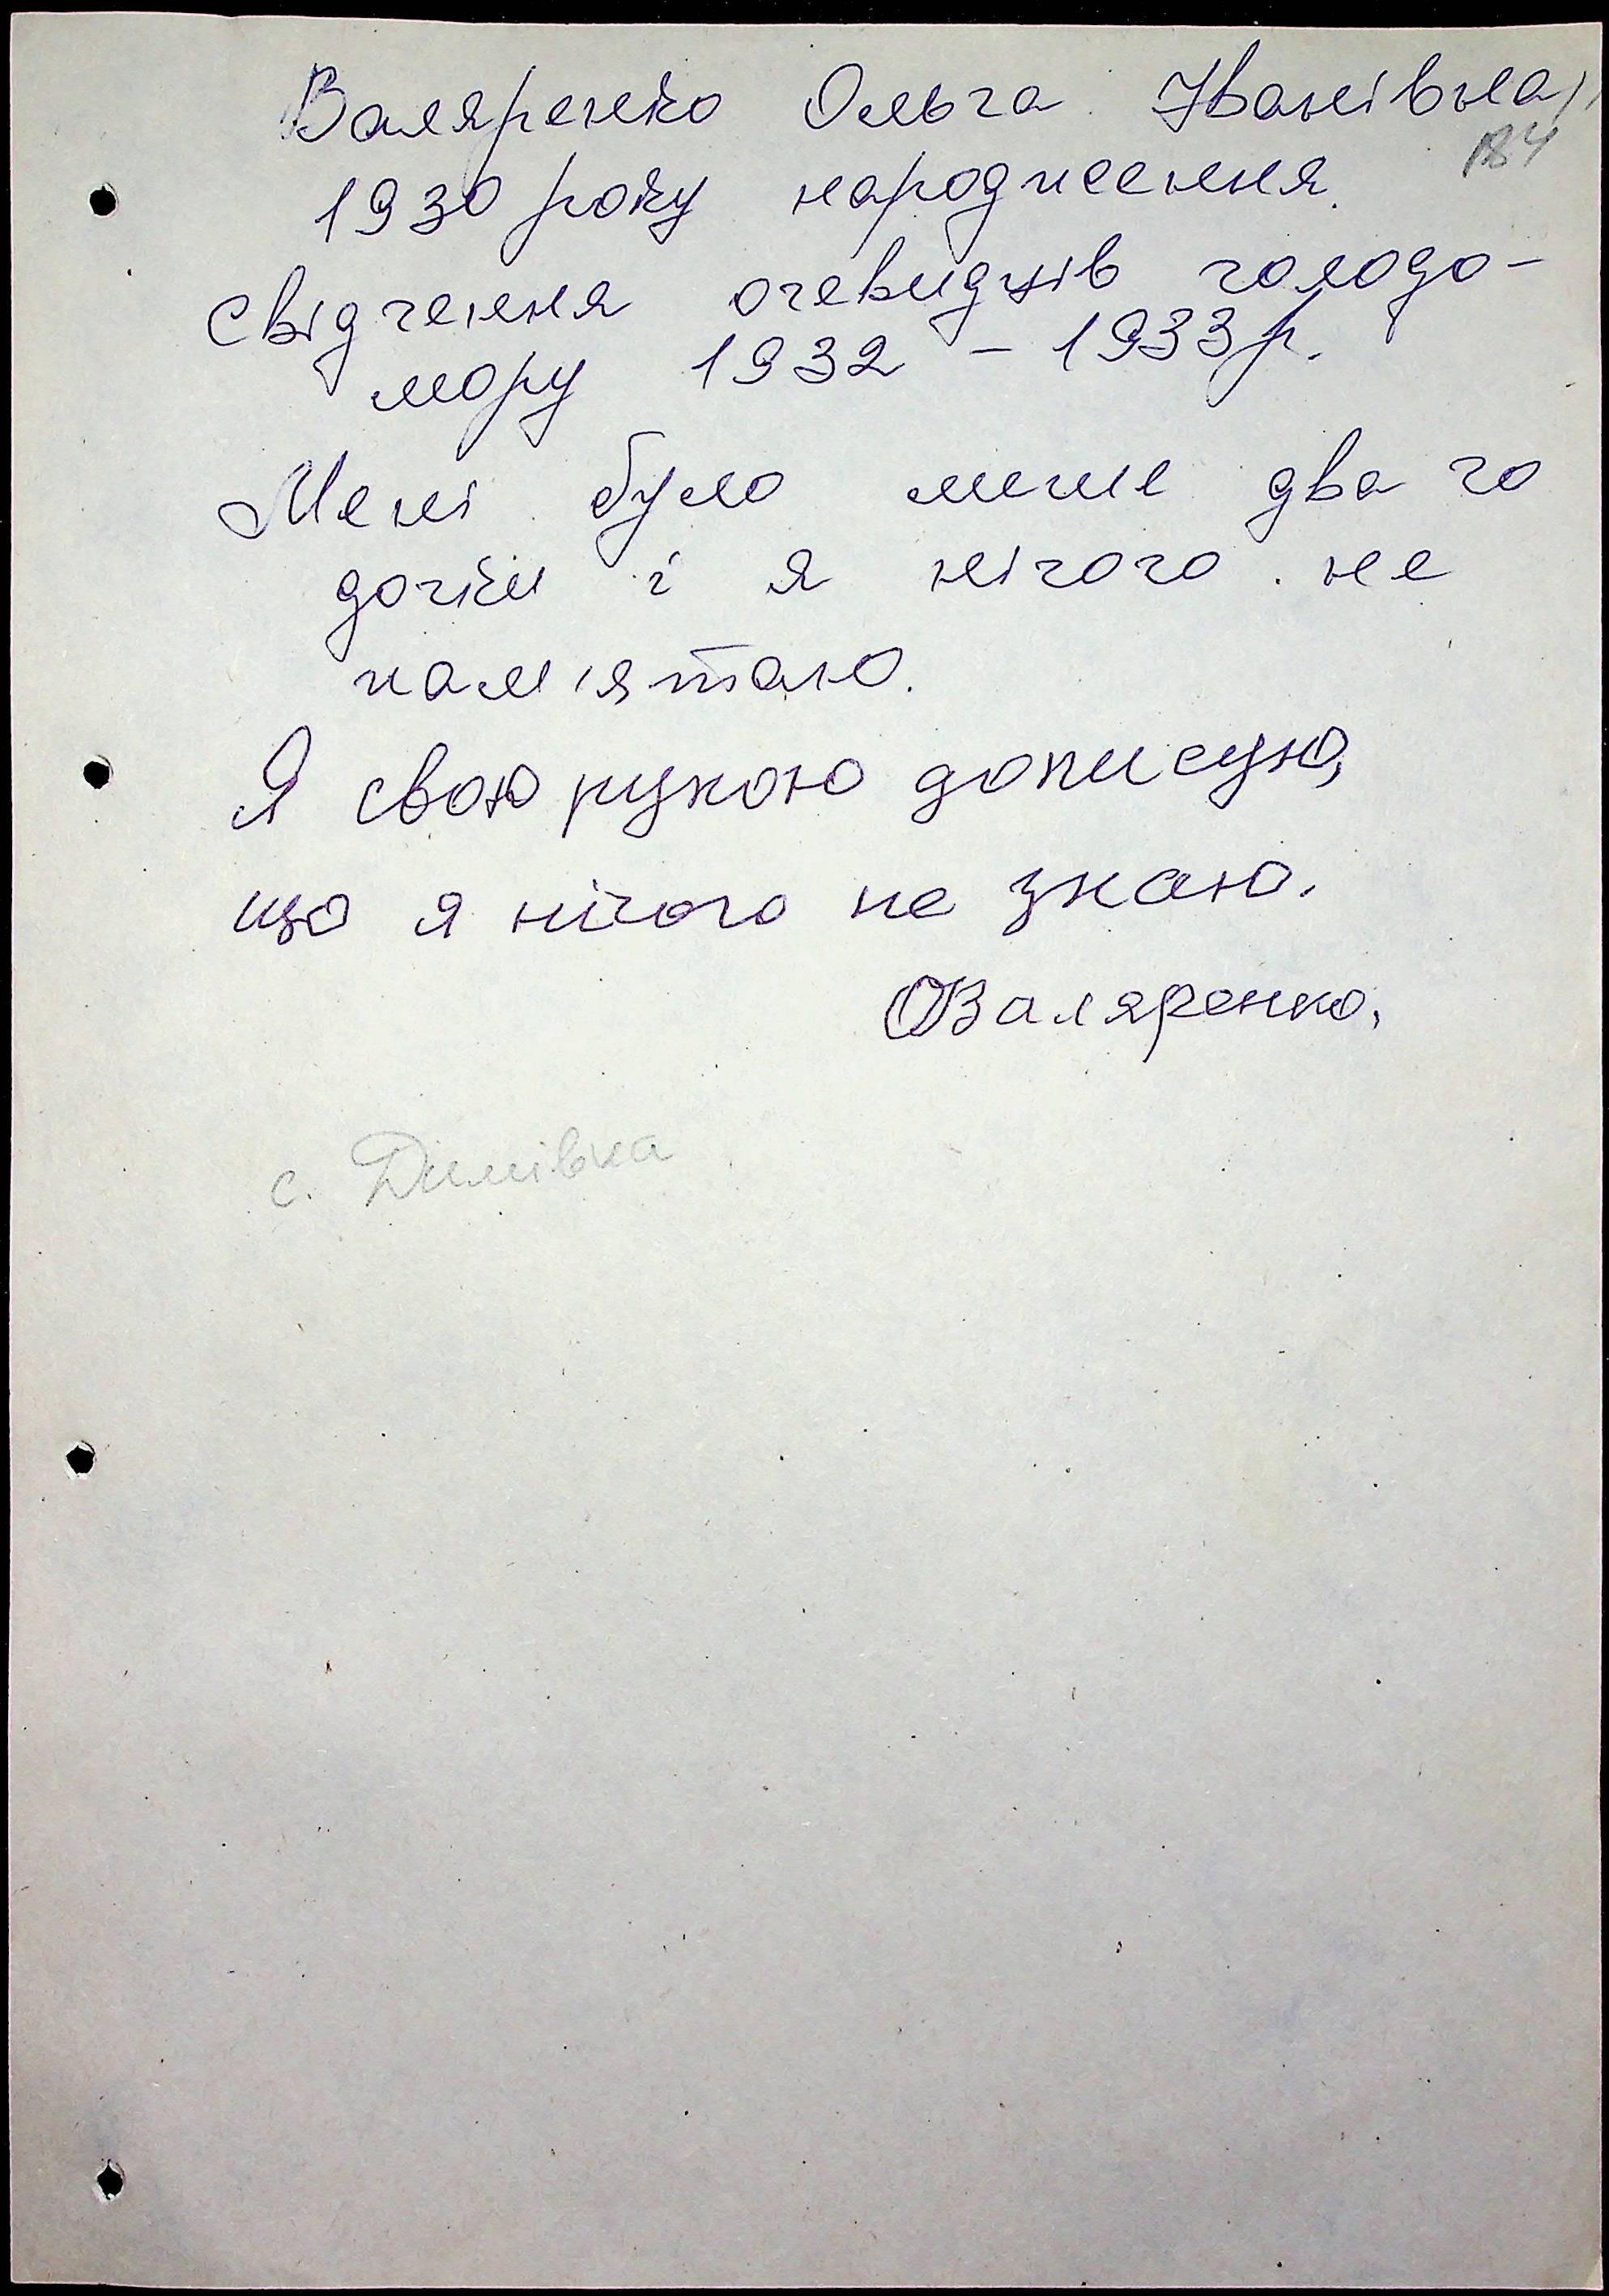 Валяренко Ольга Іванівна,
184
1930 року народження.
Свідчення очевидців голодо-
мору 1932 - 1933 р.
Мені було лише два го
дочки і я нічого не
пам'ятаю.
Я свою рукою дописую,
що я нічого не знаю.
ОВаляренко.
с. Димівка